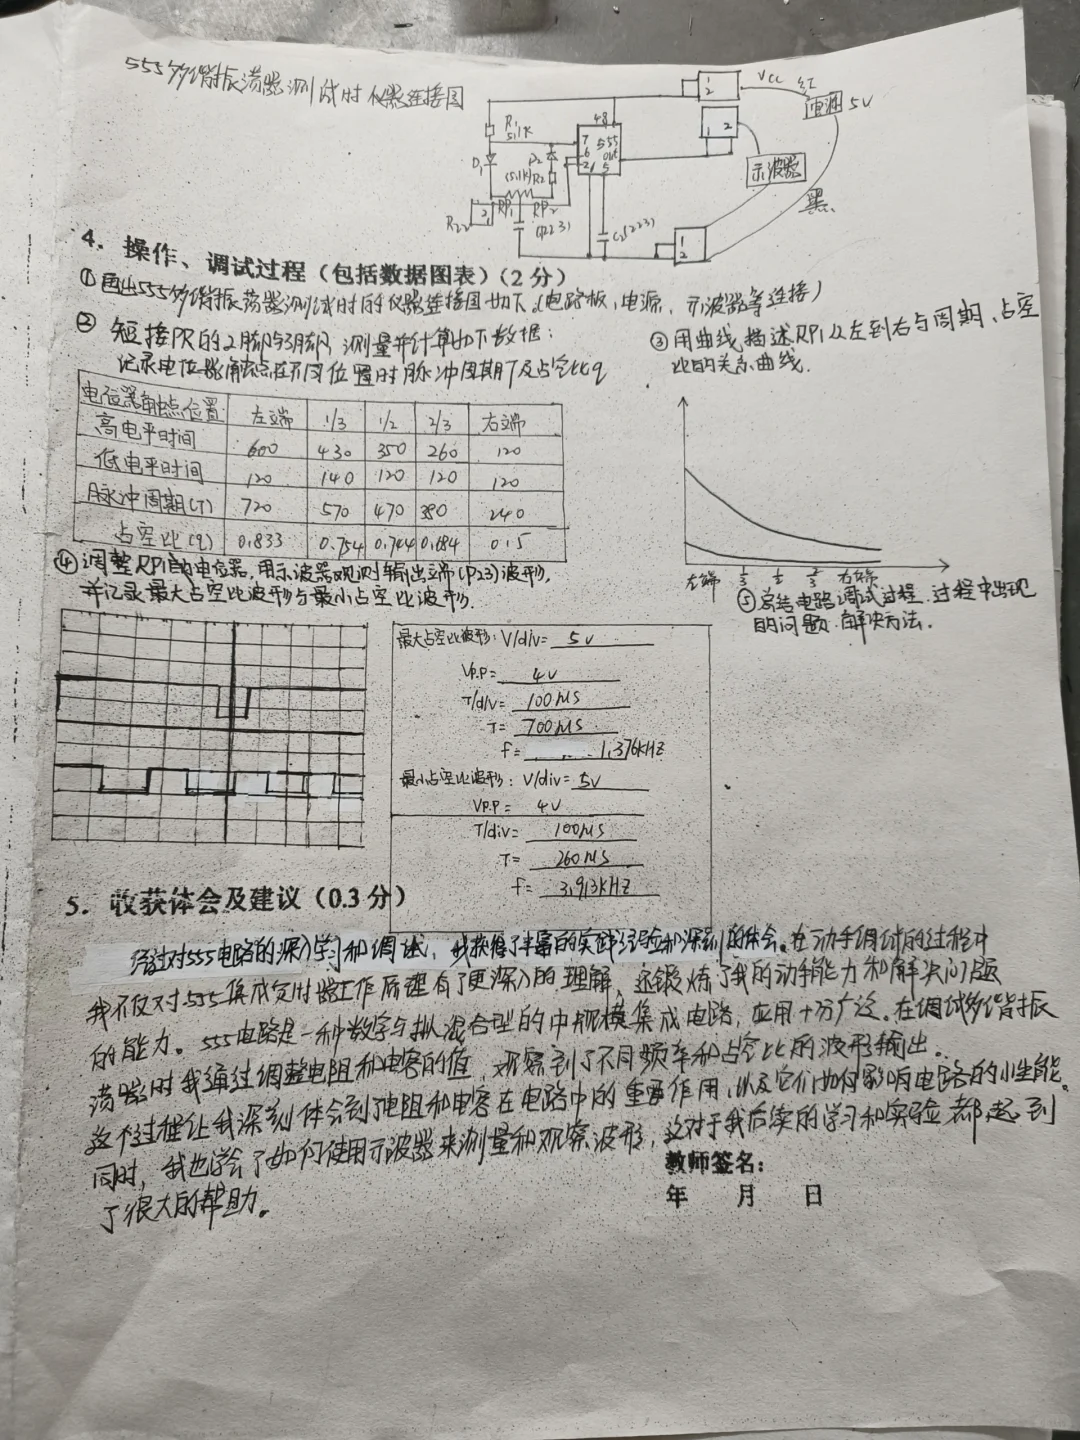 555多谐振荡器测试时仪器连接图
VCC 红
电源 5V
R1
5.1K
7 6 2 48 555 out 1 5
D1
D2
(5.1K) R2
RP1 RP2
R22
(223)
C2(223)
1 2
1 2
1 2
示波器
黑
4. 操作、调试过程（包括数据图表）（2分）
①画出555多谐振荡器测试时的仪器连接图如下。(电路板、电源、示波器等连接)
② 短接PR的2脚与3脚，测量并计算如下数据：
记录电位器触点在不同位置时脉冲周期T及占空比q
③用曲线描述RP1从左到右与周期、占空
比的关系曲线.
电位器触点位置 左端 1/3 1/2 2/3 右端
高电平时间 600 430 350 260 120
低电平时间 120 140 120 120 120
脉冲周期(T) 720 570 470 380 240
占空比(q) 0.833 0.754 0.744 0.684 0.5
左端 1/3 1/2 2/3 右端
④调整RP1的电位器,用示波器观测输出端(P23)波形,
并记录最大占空比波形与最小占空比波形.
⑤总结电路调试过程.过程中出现
的问题.解决方法.
最大占空比波形: V/div= 5V
VP.P= 4V
T/div= 100MS
T= 700MS
f= 1.376KHZ
最小占空比波形: V/div= 5V
VP.P= 4V
T/div= 100MS
T= 260MS
f= 3.913KHZ
5. 收获体会及建议（0.3分）
经过对555电路的深入学习和调试，我获得了丰富的实践经验和深刻的体会。在动手调试的过程中
我不仅对555集成定时器工作原理有了更深入的理解，还锻炼了我的动手能力和解决问题
的能力。555电路是一种数字与拟混合型的中规模集成电路，应用十分广泛。在调试多谐振
荡器时我通过调整电阻和电容的值，观察到了不同频率和占空比的波形输出。
这个过程让我深刻体会到了电阻和电容在电路中的重要作用，以及它们如何影响电路的性能。
同时，我也学会了如何使用示波器来测量和观察波形，这对于我后续的学习和实验都起到
了很大的帮助。
教师签名：
年 月 日